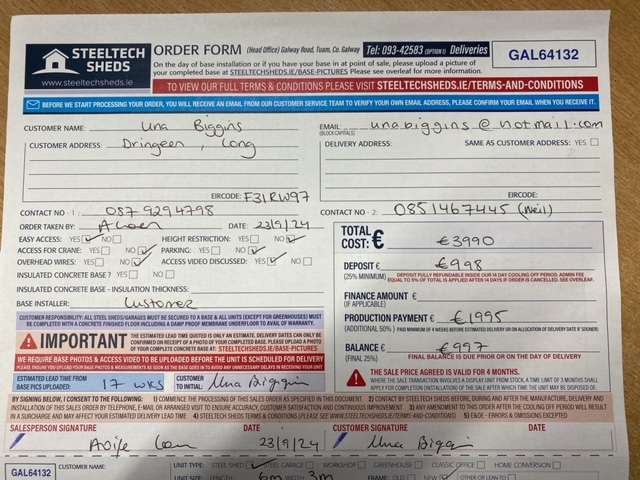 STEELTECH SHEDS
www.steeltechsheds.ie
ORDER FORM (Head Office) Galway Road, Tuam, Co. Galway Tel: 093-42583 (OPTION 1) Deliveries
GAL64132
On the day of base installation or if you have your base in at point of sale, please upload a picture of
your completed base at STEELTECHSHEDS.IE/BASE-PICTURES Please see overleaf for more information.
TO VIEW OUR FULL TERMS & CONDITIONS PLEASE VISIT STEELTECHSHEDS.IE/TERMS-AND-CONDITIONS
BEFORE WE START PROCESSING YOUR ORDER, YOU WILL RECEIVE AN EMAIL FROM OUR CUSTOMER SERVICE TEAM TO VERIFY YOUR OWN EMAIL ADDRESS, PLEASE CONFIRM YOUR EMAIL WHEN YOU RECEIVE IT.
CUSTOMER NAME: Una Biggins
EMAIL: unabiggins@hotmail.com
(BLOCK CAPITALS)
CUSTOMER ADDRESS: Dringeen, Cong
DELIVERY ADDRESS: SAME AS CUSTOMER ADDRESS: YES
EIRCODE: F31RW97
EIRCODE:
CONTACT NO - 1: 087 9294798
CONTACT NO - 2: 0851467445 (Neil)
ORDER TAKEN BY: DATE: 23/9/24
EASY ACCESS: YES NO HEIGHT RESTRICTION: YES NO
ACCESS FOR CRANE: YES NO PARKING: YES NO
OVERHEAD WIRES: YES NO ACCESS VIDEO DISCUSSED: YES NO
INSULATED CONCRETE BASE? YES NO
INSULATED CONCRETE BASE - INSULATION THICKNESS:
BASE INSTALLER: Customer
TOTAL COST: € €3990
DEPOSIT € €998
(25% MINIMUM) DEPOSIT FULLY REFUNDABLE INSIDE OUR 14 DAY COOLING OFF PERIOD. ADMIN FEE
EQUAL TO 5% OF TOTAL IS APPLIED AFTER 14 DAYS IF ORDER IS CANCELLED. SEE OVERLEAF.
FINANCE AMOUNT €
(IF APPLICABLE)
PRODUCTION PAYMENT € €1995
(ADDITIONAL 50%) PAID MINIMUM OF 4 WEEKS BEFORE ESTIMATED DELIVERY OR ON ALLOCATION OF DELIVERY DATE IF SOONER)
BALANCE € €997
(FINAL 25%) FINAL BALANCE IS DUE PRIOR OR ON THE DAY OF DELIVERY
THE SALE PRICE AGREED IS VALID FOR 4 MONTHS.
WHERE THE SALE TRANSACTION INVOLVES A DISPLAY UNIT FROM STOCK, A TIME LIMIT OF 3 MONTHS SHALL
APPLY FOR COMPLETION (INSTALLATION) OF THE SALE AFTER WHICH TIME THE UNIT MAY BE DISPOSED OF.
CUSTOMER RESPONSIBILITY: ALL STEEL SHEDS/GARAGES MUST BE SECURED TO A BASE & ALL UNITS (EXCEPT FOR GREENHOUSES) MUST
BE COMPLETED WITH A CONCRETE FINISHED FLOOR INCLUDING A DAMP PROOF MEMBRANE UNDERFLOOR TO AVAIL OF WARRANTY.
IMPORTANT
THE ESTIMATED LEAD TIME QUOTED IS ONLY AN ESTIMATE, DELIVERY DATES CAN ONLY BE
CONFIRMED ON RECEIPT OF A PHOTO OF YOUR COMPLETED BASE, PLEASE UPLOAD A PHOTO
OF YOUR COMPLETE CONCRETE BASE AT: STEELTECHSHEDS.IE/BASE-PICTURES
WE REQUIRE BASE PHOTOS & ACCESS VIDEO TO BE UPLOADED BEFORE YOUR SHED IS SCHEDULED FOR DELIVERY
PLEASE ENSURE YOU UPLOAD YOUR BASE PHOTOS & MEASUREMENTS AS SOON AS THE BASE GOES IN TO AVOID ANY UNNECESSARY DELAYS IN RECEIVING YOUR UNIT
ESTIMATED LEAD TIME FROM
BASE PICS UPLOADED: 17 WKS
CUSTOMER TO INITIAL: Una Biggins
BY SIGNING BELOW, I CONSENT TO THE FOLLOWING: 1) COMMENCE THE PROCESSING OF THIS SALES ORDER AS SPECIFIED IN THIS DOCUMENT 2) CONTACT BY STEELTECH SHEDS BEFORE, DURING AND AFTER THE MANUFACTURE, DELIVERY AND
INSTALLATION OF THIS SALES ORDER BY TELEPHONE, E-MAIL OR ARRANGED VISIT TO ENSURE ACCURACY, CUSTOMER SATISFACTION AND CONTINUOUS IMPROVEMENT 3) ANY AMENDMENT TO THIS ORDER AFTER THE COOLING OFF PERIOD WILL RESULT
IN A SURCHARGE AND MAY AFFECT YOUR ESTIMATED DELIVERY LEAD TIME 4) STEELTECH SHEDS TERMS & CONDITIONS (PLEASE SEE STEELTECHSHEDS.IE/TERMS-AND-CONDITIONS) 5) E&OE - ERRORS & OMISSIONS EXCEPTED
SALESPERSON SIGNATURE DATE CUSTOMER SIGNATURE DATE
Aoife 23/9/24 Una Biggins
GAL64132
CUSTOMER NAME: UNIT TYPE: STEEL SHED STEEL GARAGE WORKSHOP GREENHOUSE CLASSIC OFFICE HOME CONVERSION
UNIT SIZE: LENGTH: 6m WIDTH: 3m FRAME: OLD NEW OTHER OR LEAN TO